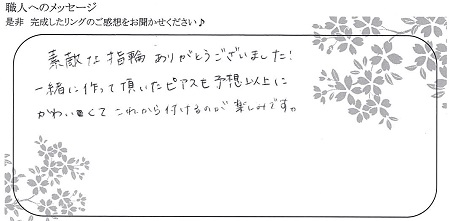 職人へのメッセージ
是非 完成したリングのご感想をお聞かせください♪
素敵な指輪ありがとうございました!
一緒に作って頂いたピアスも予想以上に
かわいくてこれから付けるのが楽しみです。